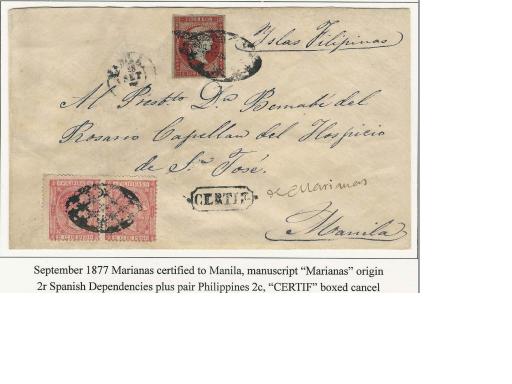 Islas Filipinas
Al Presbto D.n Bernabé del
Rosario Capellan del Hospicio
de S.n José.
CERTIF
de Marianas
Manila
September 1877 Marianas certified to Manila, manuscript “Marianas” origin
2r Spanish Dependencies plus pair Philippines 2c, “CERTIF” boxed cancel